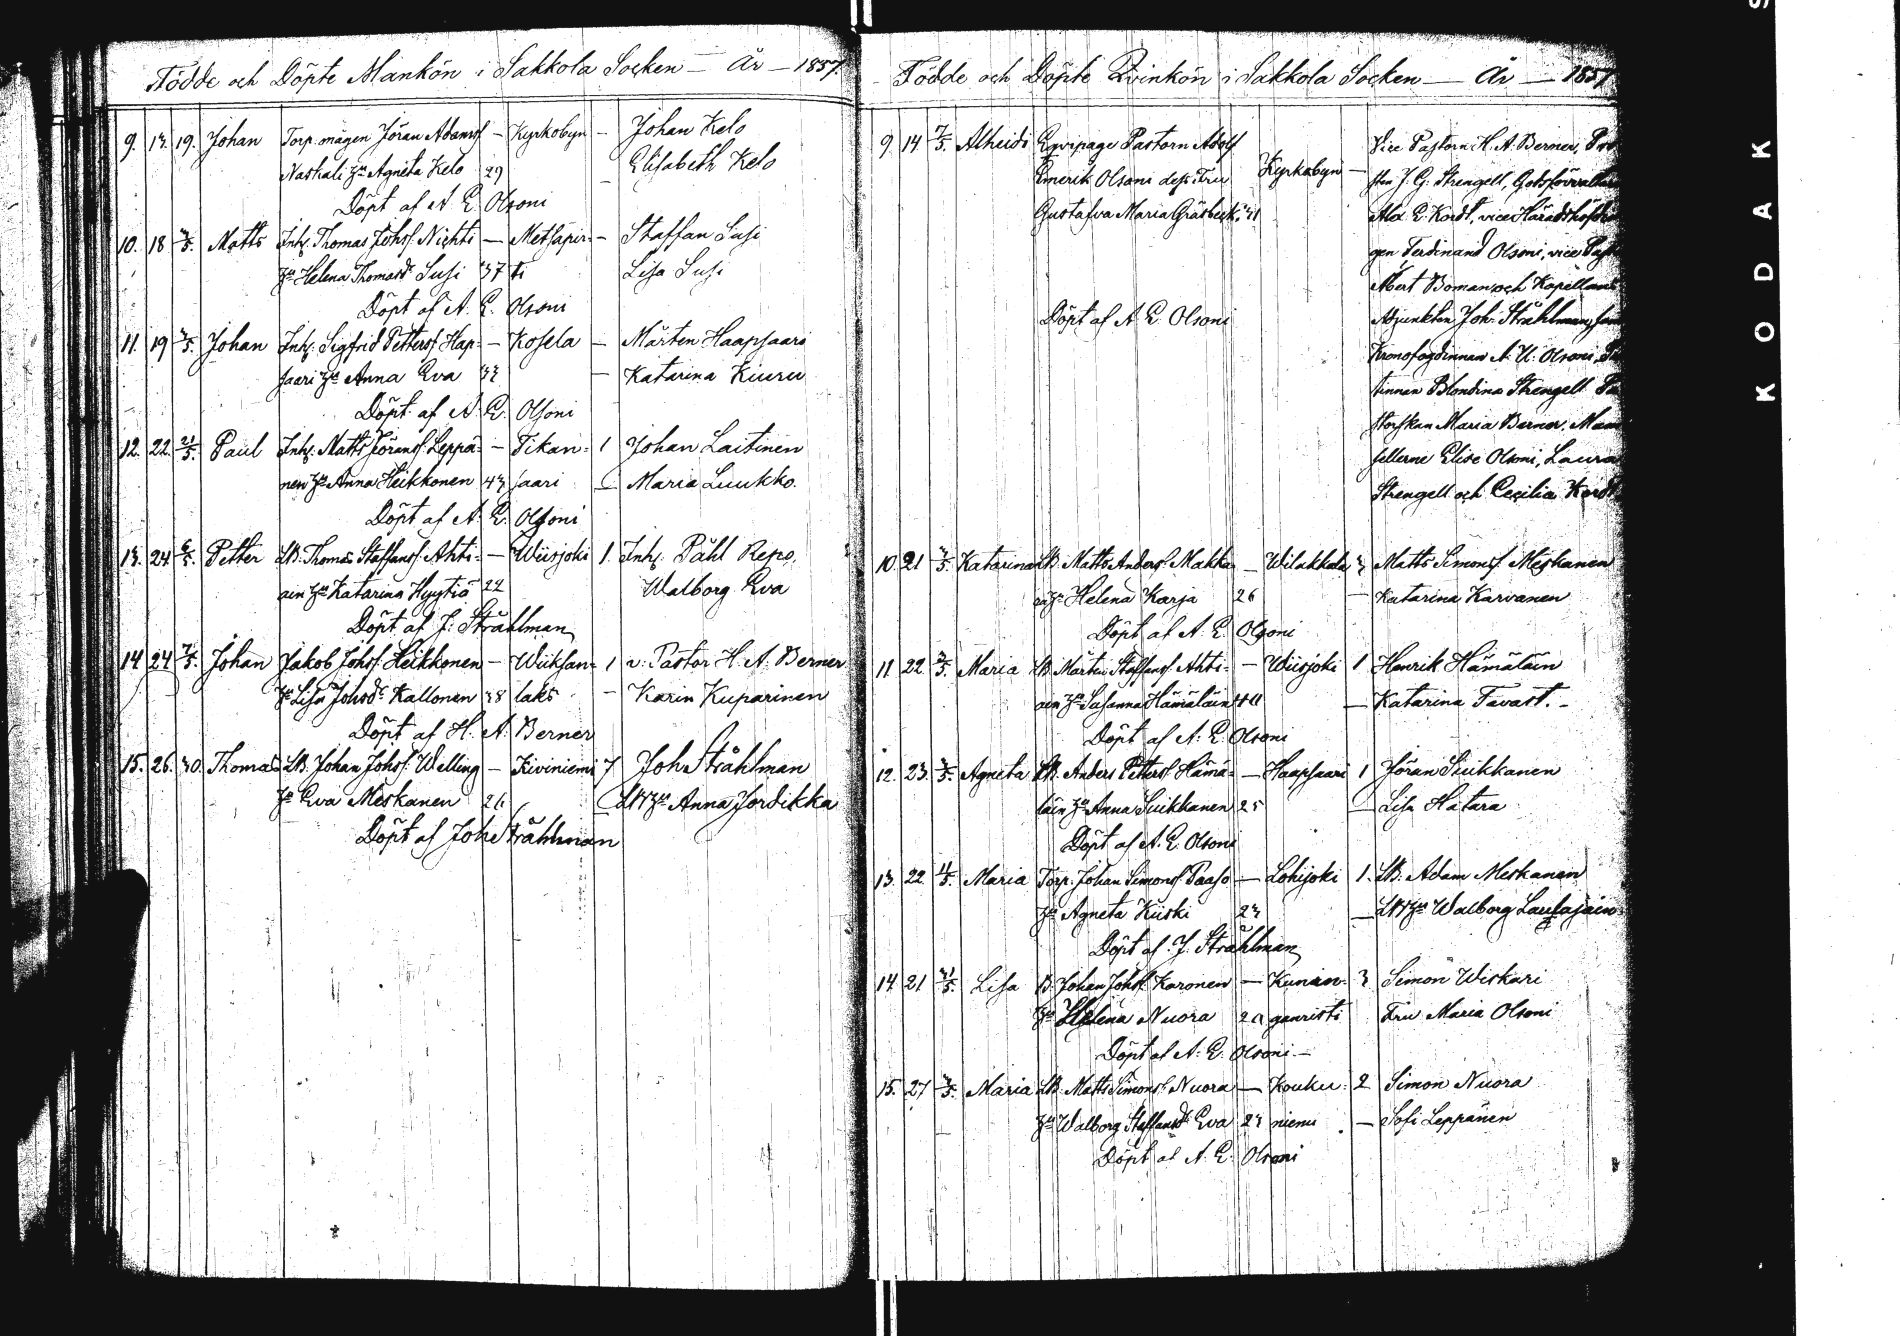 Födde och Döpte Mankön i Sakkola Socken — År — 1857.
9. 13. 19. Johan Torp. mågen Jöran Adamsf — Kyrkobyn — Johan Kelo
Naskali hu Agneta Kelo 29 — Elisabeth Kelo
Döpt af A. E. Olsoni
10. 18 3/5. Matts Inh. Thomas Johsf. Nichti — Metsäpir- — Staffan Susi
hu Helena Thomasdr Susi 37 ti Lisa Susi
Döpt af A. E. Olsoni
11. 19 3/5. Johan Inh. Sigfrid Pettersf. Hap- — Kosela — Mårten Haapsaari
saari hu Anna Eva 33 — Katarina Kiuru
Döpt af A. E. Olsoni
12. 22. 21/5. Paul Inh. Matts Jöransf. Leppä- — Tikan- 1 Johan Laitinen
nen hu Anna Heikkonen 43 saari — Maria Luukko.
Döpt af A. E. Olsoni
13. 24. 6/5. Petter LB. Thomas Staffansf. Ahti- — Wiisjoki 1. Inh. Påhl Repo,
ain hu Katarina Hyytiä 22 Walborg Eva
Döpt af J. Stråhlman
14 24 7/5. Johan Jakob Johsf. Heikkonen — Wiiksan- 1 v. Pastor H. A. Berner
hu Lisa Johsdr Kallonen 38 laks — Karin Kuparinen
Döpt af H. A. Berner
15. 26. 30. Thomas LB. Johan Johsf. Welling — Kiviniemi 7 Joh Stråhlman
hu Eva Meskanen 26 Anna Jordikka
Döpt af Joh Stråhlman
Födde och Döpte Qvinkön i Sakkola Socken — År — 1857
9. 14 7/5. Alheidi Eqvipage Pastorn Adolf Vice Pastorn H. A. Berner,
Emerik Olsoni dess Fru Kyrkobyn — J. G. Strengell,
Gustafva Maria Gräsbeck. 31 Alex. E. Kordt, vice
gen Ferdinand Olsoni, vice
Albert Boman och
Döpt af A E Olsoni Adjunkten Joh. Stråhlman,
Kronofogdinnan A. U. Olsoni,
Blondina Strengell
Maria Berner,
Elise Olsoni, Laura
Strengell och Cecilia Kordt
10. 21 3/5. Katarina LB. Matts Andersf. Makka — Wilakkala 3 Matts Simonsf. Meskanen
hu Helena Karja 26 — Katarina Karvanen
Döpt af A. E. Olsoni
11. 22. 3/5. Maria LB. Mårten Staffansf. Ahti- — Wiisjoki 1 Henrik Hämäläin
ain hu Susanna Hämäläin 40 — Katarina Tavast.
Döpt af A. E. Olsoni
12. 23. 3/5. Agneta LB. Anders Pettersf. Hämä- — Haapsaari 1 Jöran Suikkanen
läin hu Anna Suikkanen 25 — Lisa Hatara
Döpt af A. E. Olsoni
13. 22 11/5. Maria Torp. Johan Simonsf. Paaso — Lohijoki 1. LB. Adam Meskanen
hu Agneta Kiiski 23 — Walborg Laulajain
Döpt af J. Stråhlman
14. 21 31/5. Lisa B. Johan Johsf. Karonen — Kunin- 3 Simon Wiskari
hu Helena Nuora 20 ganristi Fru Maria Olsoni
Döpt af A. E. Olsoni —
15. 27 3/5. Maria LB. Matts Simonsf. Nuora — Kouku- 2 Simon Nuora
hu Walborg Staffansdr Eva 23 niemi — Sofi Leppänen
Döpt af A. E. Olsoni
KODAK